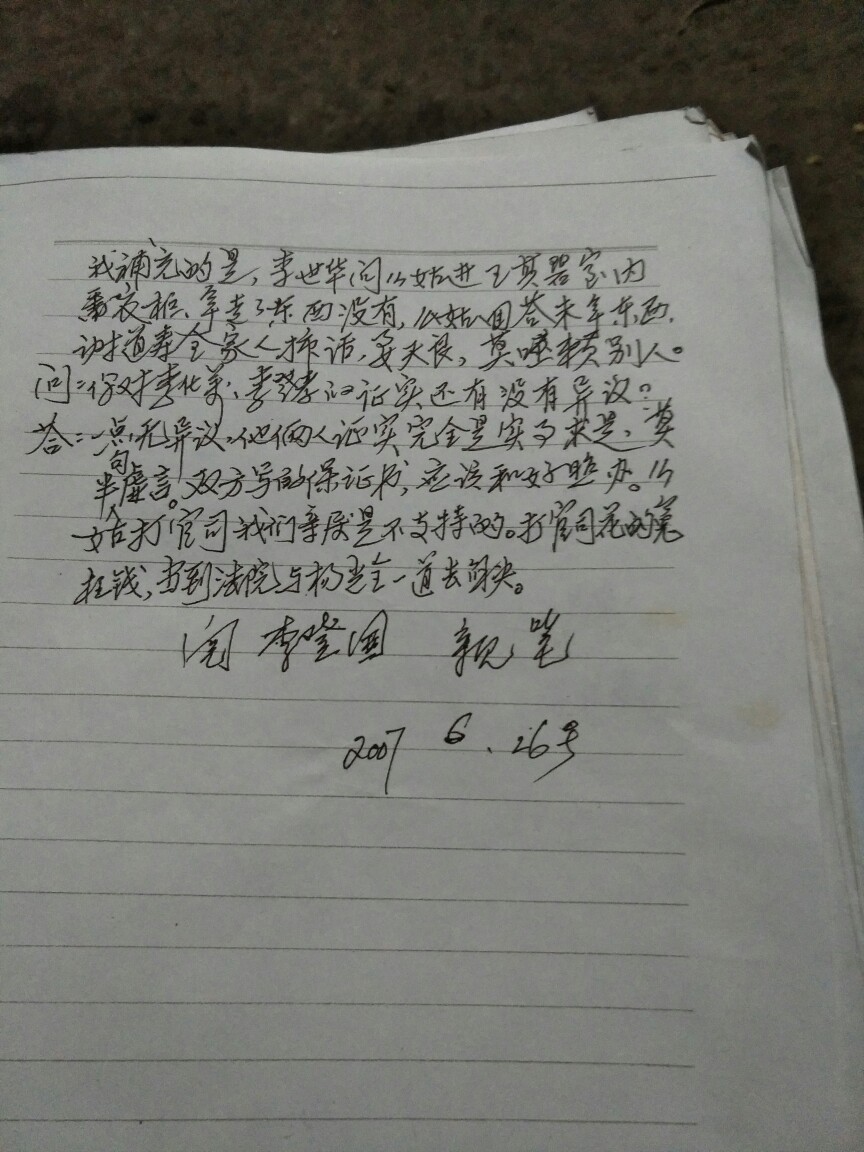 我补充的是，李世华问幺姑进王其碧家内
衣柜、拿走了东西没有，幺姑回答未拿东西，
全家人讲话，要天良，莫诬赖别人。
问：你对李化美、李登孝的证实还有没有异议？
答：一点无异议。他俩人证实完全是实事求是，莫
半句虚言。双方写的保证书，应该和好照办。幺
姑打官司我们亲戚是不支持的。打官司花的冤
枉钱，当到法院与杨光全一道去解决。
李登国 亲笔
2007 6.26号